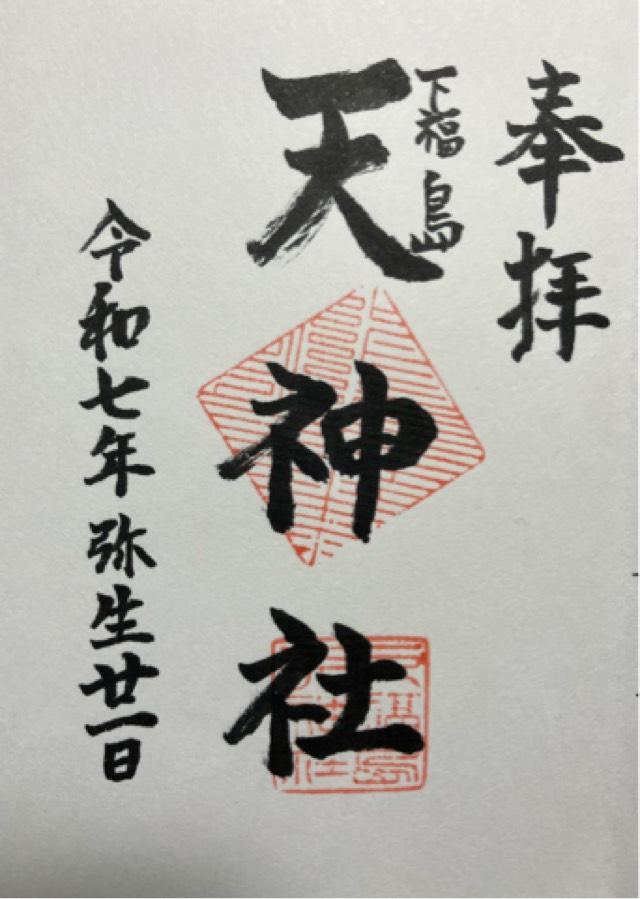 奉拝
下福島
天神社
令和七年弥生廿一日